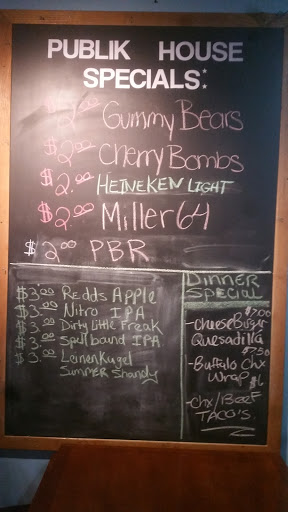 PUBLIK HOUSE
SPECIALS:
$2.00 Gummy Bears
$2.00 Cherry Bombs
$2.00 HEINEKEN LIGHT
$2.00 Miller 64
$2.00 PBR
$3.00 Redds Apple
$3.00 Nitro IPA
$3.00 Dirty Little Freak
$3.00 Spellbound IPA
$3.00 Leinenkugel
Summer Shandy
DINNER
SPECIAL
$7.00
-Cheese Burger
Quesadilla
$7.50
-Buffalo Chx
Wrap $6
-Chx/BEEF
TACO'S